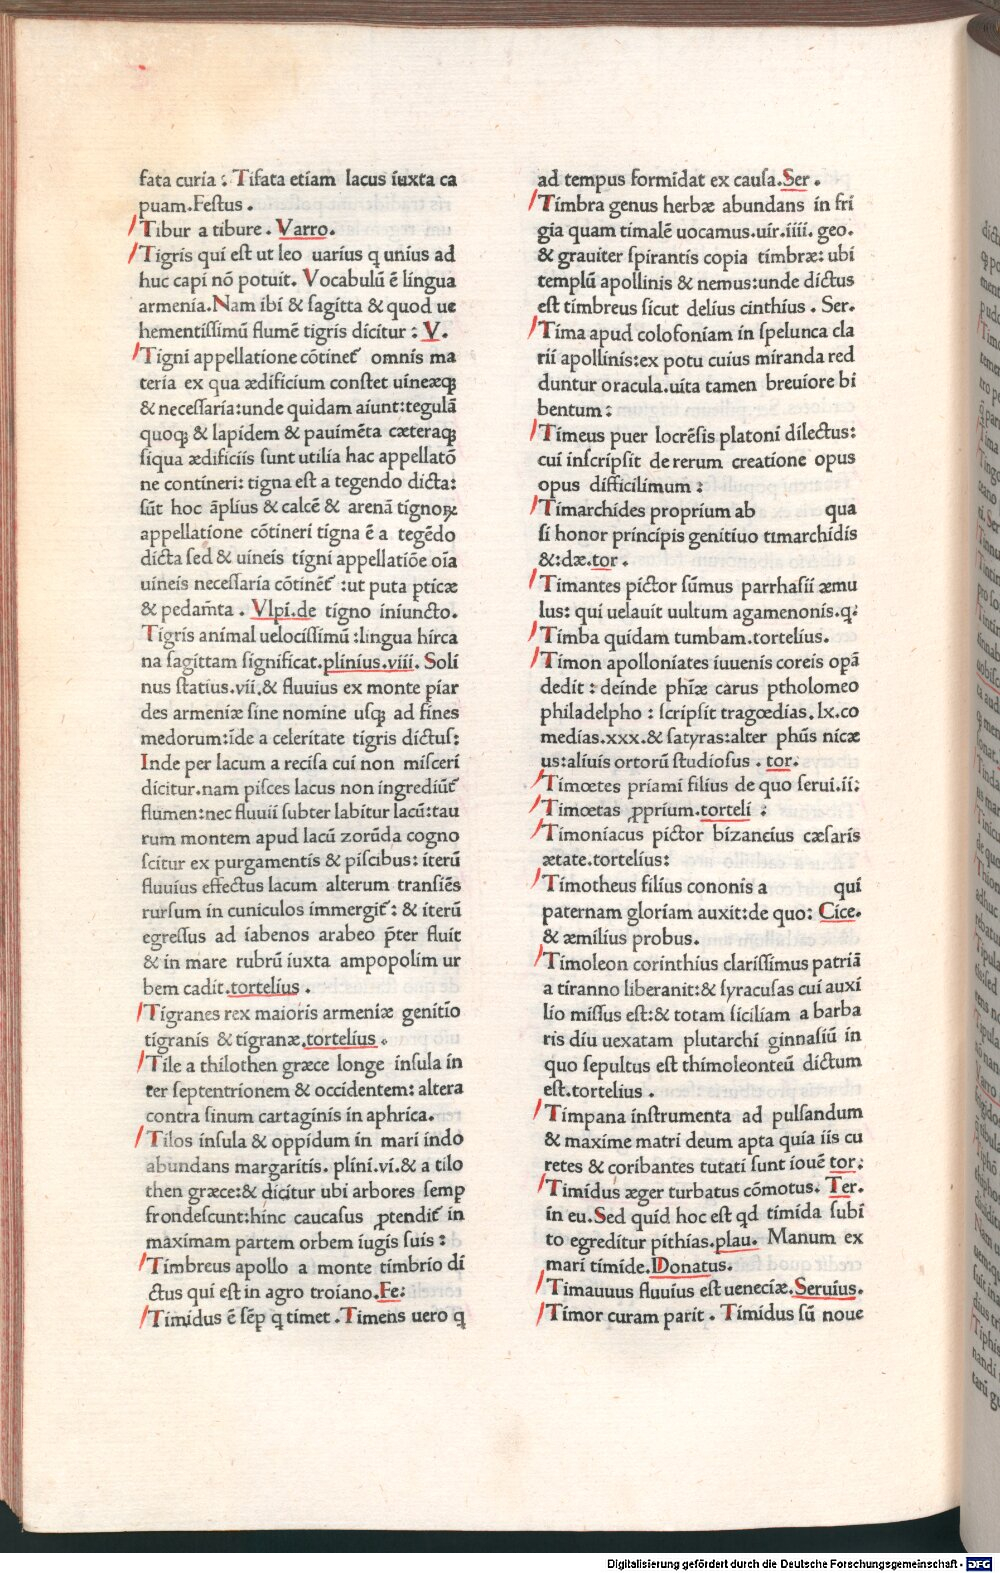 fata curia : Tifata etiam lacus iuxta ca
puam.Festus .
Tibur a tibure . Varro.
Tigris qui est ut leo uarius q unius ad
huc capi nō potuit. Vocabulū ē lingua
armenia.Nam ibi & sagitta & quod ue
hementissimū flumē tigris dicitur : V.
Tigni appellatione cōtinet᷑ omnis ma
teria ex qua ædificium constet uineæqꝫ
& necessaria:unde quidam aiunt:tegulā
quoqꝫ & lapidem & pauimēta cæteraqꝫ
siqua ædificiis sunt utilia hac appellatō
ne contineri: tigna est a tegendo dicta:
sūt hoc āplius & calcē & arenā tignoꝝ
appellatione cōtineri tigna ē a tegēdo
dicta sed & uineis tigni appellatiōe oīa
uineis necessaria cōtinēt᷑ :ut puta ꝑticæ
& pedam̄ta . Vlpi.de tigno iniuncto.
Tigris animal uelocissimū :lingua hirca
na sagittam significat.plinius.viii. Soli
nus statius.vii.& fluuius ex monte piar
des armeniæ sine nomine usqꝫ ad fines
medorum:īde a celeritate tigris dictus:
Inde per lacum a recisa cui non misceri
dicitur.nam pisces lacus non ingrediūt᷑
flumen:nec fluuii subter labitur lacū:tau
rum montem apud lacū zorūda cogno
scitur ex purgamentis & piscibus: iterū
fluuius effectus lacum alterum transiēs
rursum in cuniculos immergit᷑ : & iterū
egressus ad iabenos arabeo p̄ter fluit
& in mare rubrū iuxta ampopolim ur
bem cadit.tortelius .
Tigranes rex maioris armeniæ genitīo
tigranis & tigranæ.tortelius .
Tile a thilothen græce longe insula in
ter septentrionem & occidentem: altera
contra sinum cartaginis in aphrica.
Tilos insula & oppidum in mari indo
abundans margaritis. plini.vi.& a tilo
then græce:& dicitur ubi arbores semꝑ
frondescunt:hinc caucasus ꝓtendit᷑ in
maximam partem orbem iugis suis :
Timbreus apollo a monte timbrio di
ctus qui est in agro troiano.Fe:
Timidus ē sēꝑ q timet .Timens uero q
ad tempus formidat ex causa.Ser .
Timbra genus herbæ abundans in fri
gia quam timalē uocamus.uir.iiii. geo.
& grauiter spirantis copia timbræ: ubi
templū apollinis & nemus:unde dictus
est timbreus sicut delius cinthius . Ser.
Tima apud colofoniam in spelunca cla
rii apollinis:ex potu cuius miranda red
duntur oracula.uita tamen breuiore bi
bentum :
Timeus puer locrēsis platoni dilectus:
cui inscripsit de rerum creatione opus
opus difficilimum :
Timarchides proprium ab qua
si honor principis genitiuo timarchidis
&:dæ.tor .
Timantes pictor sūmus parrhasii æmu
lus: qui uelauit uultum agamenonis.q;
Timba quidam tumbam.tortelius.
Timon apolloniates iuuenis coreis opā
dedit : deinde phīæ carus ptholomeo
philadelpho : scripsit tragœdias. lx.co
medias.xxx.& satyras:alter phūs nicæ
us:aliuis ortorū studiosus . tor.
Timœtes priami filius de quo serui.ii:
Timœtas ꝓprium.torteli :
Timoniacus pictor bizancius cæsaris
ætate.tortelius:
Timotheus filius cononis a qui
paternam gloriam auxit:de quo: Cice.
& æmilius probus.
Timoleon corinthius clarissimus patriā
a tiranno liberanit:& syracusas cui auxi
lio missus est:& totam siciliam a barba
ris diu uexatam plutarchi ginnasiū in
quo sepultus est thimoleonteū dictum
est.tortelius .
Timpana instrumenta ad pulsandum
& maxime matri deum apta quia iis cu
retes & coribantes tutati sunt iouē tor:
Timidus æger turbatus cōmotus. Ter.
in eu.Sed quid hoc est qd timida subi
to egreditur pithias.plau. Manum ex
mari timide.Donatus.
Timauuus fluuius est ueneciæ.Seruius.
Timor curam parit . Timidus sū noue
Digitalisierung gefördert durch die Deutsche Forschungsgemeinschaft - DFG